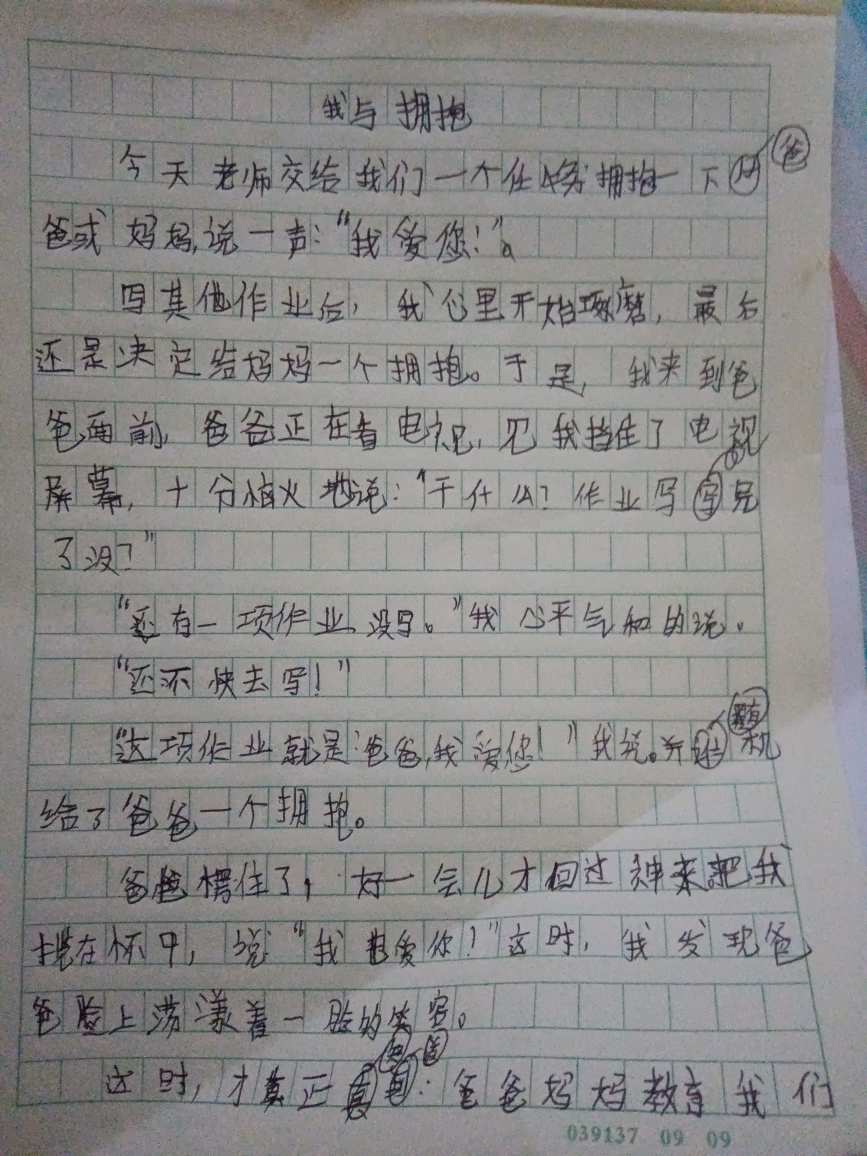 我与拥抱
今天老师交给我们一个任务拥抱一下爸
爸或妈妈,说一声:“我爱您!”。
写其他作业后,我心里开始琢磨,最后
还是决定给妈妈一个拥抱。于是,我来到爸
爸面前,爸爸正在看电视,见我挡住了电视
屏幕,十分恼火地说:“干什么?作业写完
了没?”
“还有一项作业没写。”我心平气和的说。
“还不快去写!”
“这项作业就是:爸爸,我爱您!”我说。并随机
给了爸爸一个拥抱。
爸爸愣住了,好一会儿才回过神来把我
搅在怀中,说:“我也爱你!”这时,我发现爸
爸脸上荡漾着一脸的笑容。
这时,才真正:爸爸妈妈教育我们
039137 09 09